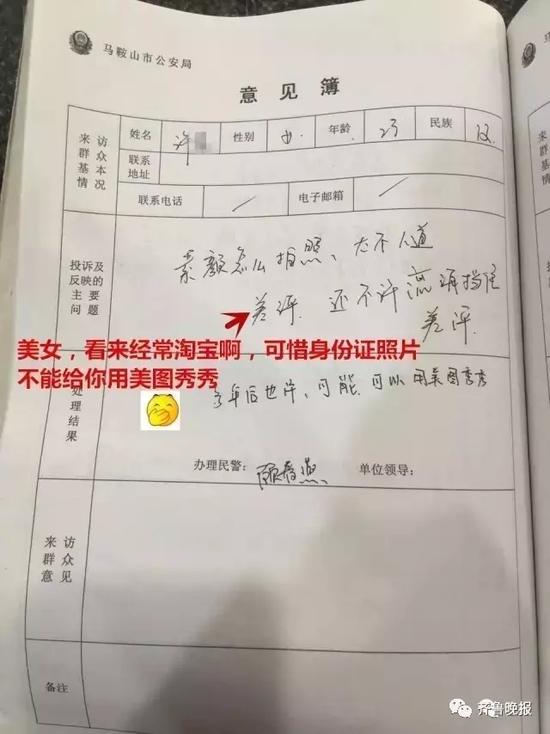 马鞍山市公安局
意见簿
来访群众基本情况
姓名 许 性别 女 年龄 23 民族 汉
联系地址
联系电话 / 电子邮箱 /
投诉及反映的主要问题
素颜怎么拍照、太不人道
差评 还不许 流海挡住
差评
美女，看来经常淘宝啊，可惜身份证照片
不能给你用美图秀秀
处理结果
多年后也许、可能、可以用美图秀秀
办理民警： 顾春燕 单位领导：
来访群众意见
备注
齐鲁晚报